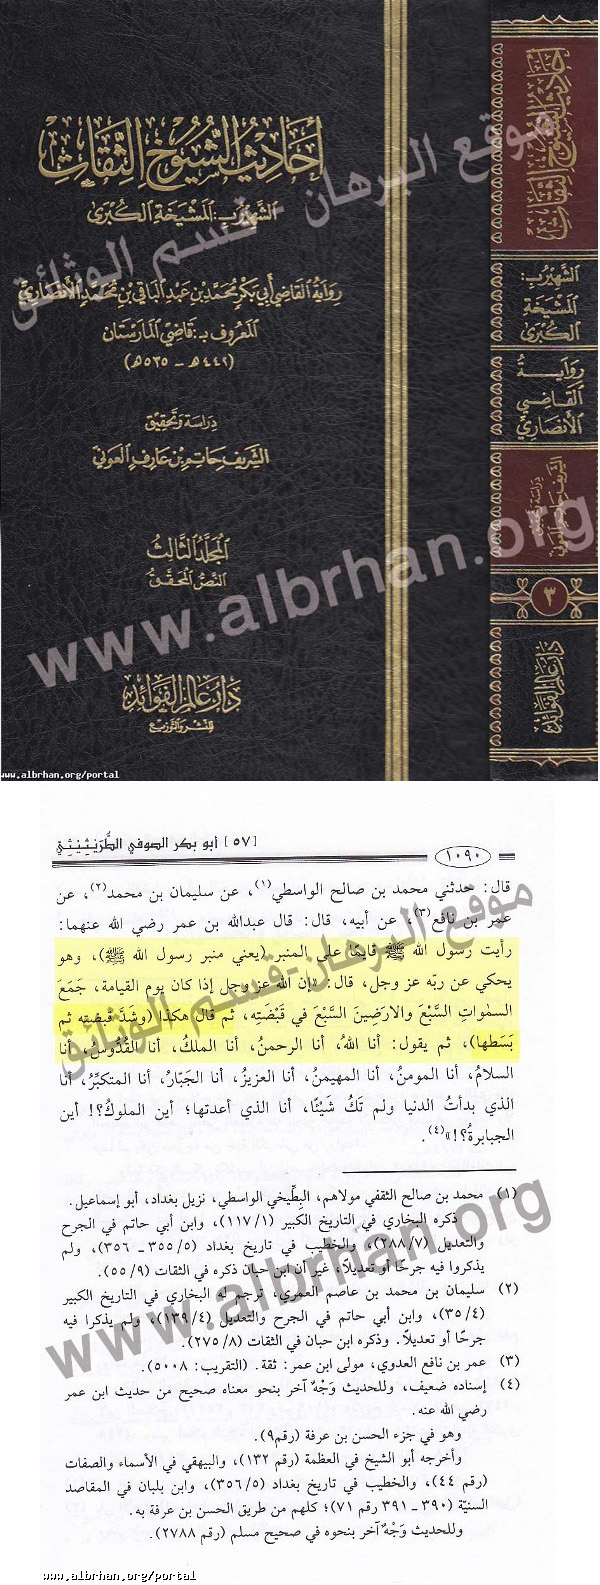 أحاديث الشيوخ الثقات
الشهير بـ: المشيخة الكبرى
رواية القاضي أبي بكر محمد بن عبد الباقي بن محمد الأنصاري
المعروف بـ: قاضي المارستان
(٤٤٢هـ - ٥٣٥هـ)
دراسة وتحقيق
الشريف حاتم بن عارف العوني
المجلد الثالث
النص المحقق
دار عالم الفوائد
للنشر والتوزيع
أحاديث الشيوخ الثقات
الشهير بـ:
المشيخة
الكبرى
رواية
القاضي
الأنصاري
دراسة وتحقيق
الشريف حاتم بن عارف العوني
٣
دار عالم الفوائد
موقع البرهان - قسم الوثائق
www.albrhan.org
www.albrhan.org/portal
١٠٩٠
[٥٧] أبو بكر الصوفي الطُّرَيثِيثِي
قال: حدثني محمد بن صالح الواسطي(١)، عن سليمان بن محمد(٢)، عن
عمر بن نافع(٣)، عن أبيه، قال: قال عبدالله بن عمر رضي الله عنهما:
رأيت رسول الله ﷺ قايمًا على المنبر (يعني منبر رسول الله ﷺ)، وهو
يحكي عن ربّه عز وجل، قال: «إن الله عز وجل إذا كان يوم القيامة، جَمَعَ
السمٰوات السَّبْعَ والارَضِينَ السَّبْعَ في قَبْضَتِه، ثم قال هكذا (وشَدَّ قبضته ثم
بَسَطها)، ثم يقول: أنا اللهُ، أنا الرحمنُ، أنا الملكُ، أنا القُدُّوسُ، أنا
السلامُ، أنا المومنُ، أنا المهيمنُ، أنا العزيزُ، أنا الجَبّارُ، أنا المتكبِّرُ، أنا
الذي بدأتُ الدنيا ولم تَكُ شَيْئًا، أنا الذي أعدتها؛ أين الملوكُ؟! أين
الجبابرةُ؟!»(٤).
(١) محمد بن صالح الثقفي مولاهم، البِطِّيخي الواسطي، نزيل بغداد، أبو إسماعيل.
ذكره البخاري في التاريخ الكبير (١/١١٧)، وابن أبي حاتم في الجرح
والتعديل (٧/٢٨٨)، والخطيب في تاريخ بغداد (٥/٣٥٥ - ٣٥٦)، ولم
يذكروا فيه جرحًا أو تعديلًا، غير أن ابن حبان ذكره في الثقات (٩/٥٥).
(٢) سليمان بن محمد بن عاصم العمري، ترجم له البخاري في التاريخ الكبير
(٤/٣٥)، وابن أبي حاتم في الجرح والتعديل (٤/١٣٩)، ولم يذكرا فيه
جرحًا أو تعديلًا. وذكره ابن حبان في الثقات (٨/٢٧٥).
(٣) عمر بن نافع العدوي، مولى ابن عمر: ثقة. (التقريب: ٥٠٠٨).
(٤) إسناده ضعيف، وللحديث وَجْهٌ آخر بنحو معناه صحيح من حديث ابن عمر
رضي الله عنه.
وهو في جزء الحسن بن عرفة (رقم٩).
وأخرجه أبو الشيخ في العظمة (رقم ١٣٢)، والبيهقي في الأسماء والصفات
(رقم ٤٤)، والخطيب في تاريخ بغداد (٥/٣٥٦)، وابن بلبان في المقاصد
السنيّة (٣٩٠ - ٣٩١ رقم ٧١)؛ كلهم من طريق الحسن بن عرفة به.
وللحديث وَجْهٌ آخر بنحوه في صحيح مسلم (رقم ٢٧٨٨).
موقع البرهان-قسم الوثائق
www.albrhan.org
www.albrhan.org/portal